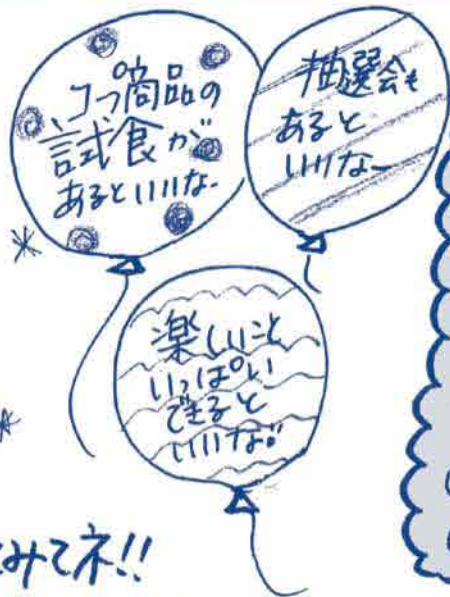 商品の
試食が
あるといいな-
抽選会も
あると
いいなー
楽しいこと
いっぱい
できると
いいな!!
みてネ!!